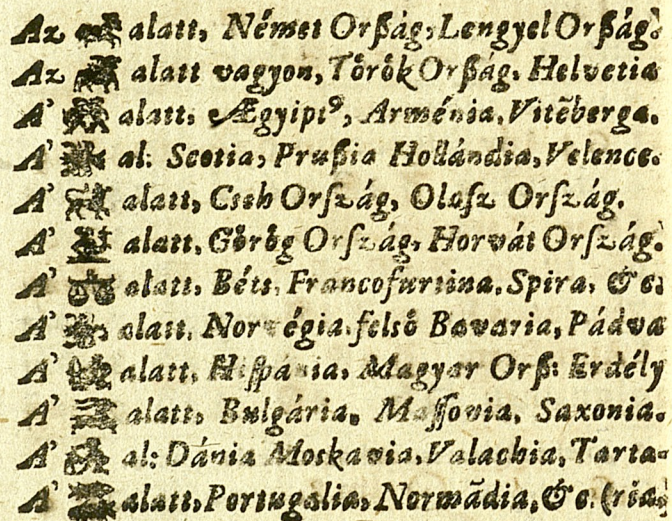 Az alatt, Német Orßág, Lengyel Orßág.
Az alatt vagyon, Tôrôk Orßág, Helvetia
A' alatt, Ægyiptꝰ, Arménia, Vitēberga.
A' al: Scotia, Prußia Hollándia, Velence.
A' alatt, Cseh Orſzág, Olaſz Orſzág.
A' alatt, Gôrôg Orſzág, Horvát Orſzág.
A' alatt, Béts, Francofurtina, Spira, &c.
A' alatt, Norvégia, felsô Bavaria, Pádva
A' alatt, Hiſpánia, Magyar Orß: Erdély
A' alatt, Bulgária, Maſſovia, Saxonia.
A' al: Dánia Moskavia, Valachia, Tarta-
A' alatt, Portugalia, Normādia, &c. (ria.